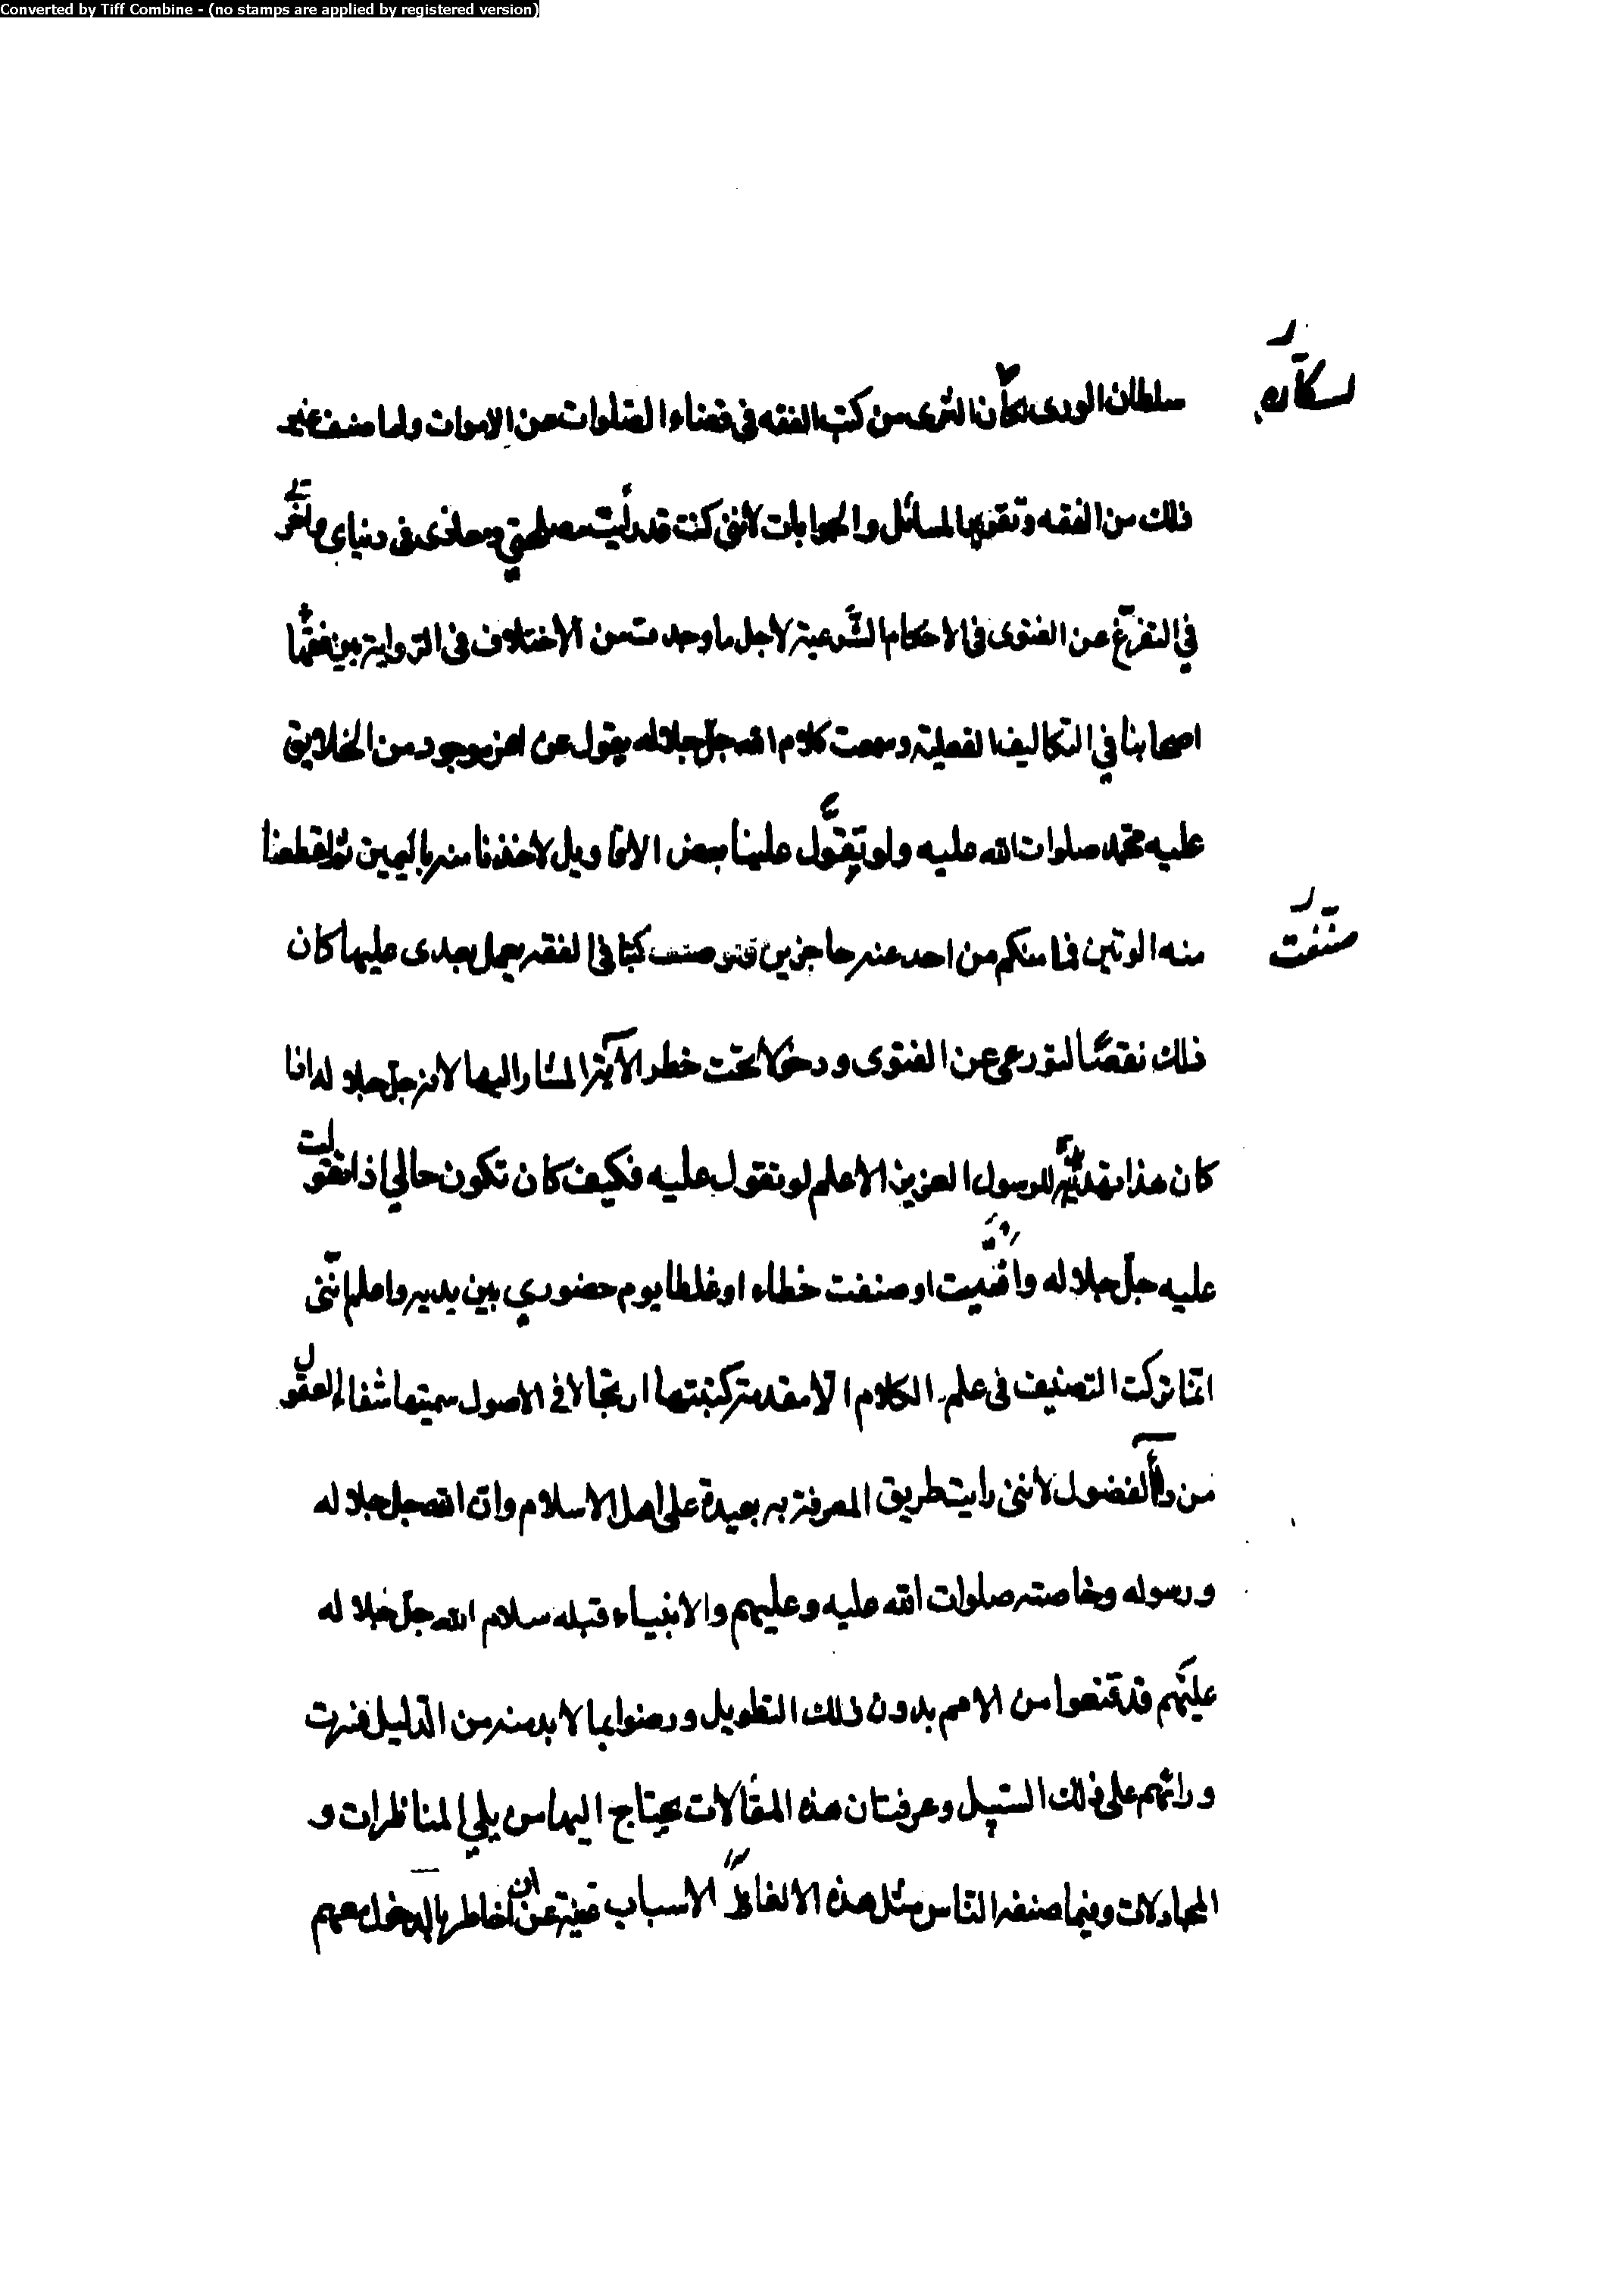 Converted by Tiff Combine - (no stamps are applied by registered version)
سلطان الورى لسكان الثرى من كتب الفقه فى قضاء الصلوات عن الاموات ولما صنف غير
ذلك من الفقه وتقرير المسائل والجوابات لأننى كنت قد رأيت مصلحتي ومعاذى فى دنياى وآخرتي
في التفرّغ عن الفتوى فى الاحكام الشّرعية لاجل ما وجدت من الاختلاف فى الرّواية بين فقهاء
اصحابنا في التكاليف الفعلية وسمعت كلام الله جلّ جلاله يقول عن اعز موجود من الخلايق
عليه محمّد صلوات الله عليه ولو تقوّل علينا بعض الاقاويل لاخذنا منه باليمين ثم لقطعنا
منه الوتين فما منكم من احد عنه حاجزين فلو صنفت كتبا فى الفقه يعمل بعدى عليها كان
صنّفت
ذلك نقضًا لتورعى عن الفتوى ودخولا تحت خطر الآية المشار اليها لانه جلّ جلاله اذا
كان هذا تهديده للرسول العزيز الاعلم لو تقول عليه فكيف كان تكون حالي اذا تقولت
عليه جلّ جلاله وافتيت او صنفت خطاء او غلطا يوم حضوري بين يديه واعلم إنّنى
انّما تركت التصنيف فى علم الكلام الّا مقدمة كتبتها ارتجالا فى الاصول سميتها شفاء العقول
من داء الفضول لاننى رايت طريق المعرفة به بعيدة على اهل الاسلام وانّ الله جل جلاله
ورسوله وخاصته صلوات الله عليه وعليهم والانبياء قبله سلام الله جلّ جلاله
عليهم قد قنعوا من الامم بدون ذلك التطويل ورضوا بما لا بد منه من الدّليل فسرت
وراءهم على ذلك السّبيل وعرفت ان هذه المقالات يحتاج اليها من يلي المناظرات و
المجادلات وفيما صنفه النّاس مثل هذه الالفاظ والاسباب غنية عن ان اخاطر بالدخول معهم